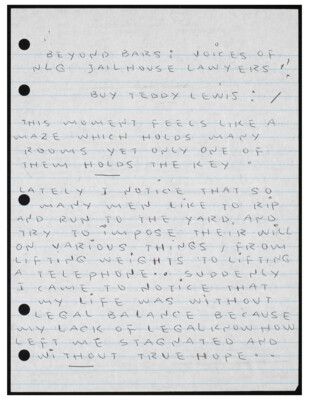 BEYOND BARS: VOICES OF
NLG JAILHOUSE LAWYERS!!
BUY TEDDY LEWIS: /
THIS MOMENT FEELS LIKE A
MAZE WHICH HOLDS MANY
ROOMS YET ONLY ONE OF
THEM HOLDS THE KEY.
LATELY I NOTICE THAT SO
MANY MEN LIKE TO RIP
AND RUN TO THE YARD, AND
TRY TO IMPOSE THEIR WILL
ON VARIOUS THINGS / FROM
LIFTING WEIGHTS TO LIFTING
A TELEPHONE.. SUDDENLY
I CAME TO NOTICE THAT
MY LIFE WAS WITHOUT
LEGAL BALANCE BECAUSE
MY LACK OF LEGAL KNOW HOW
LEFT ME STAGNATED AND
WITHOUT TRUE HOPE..